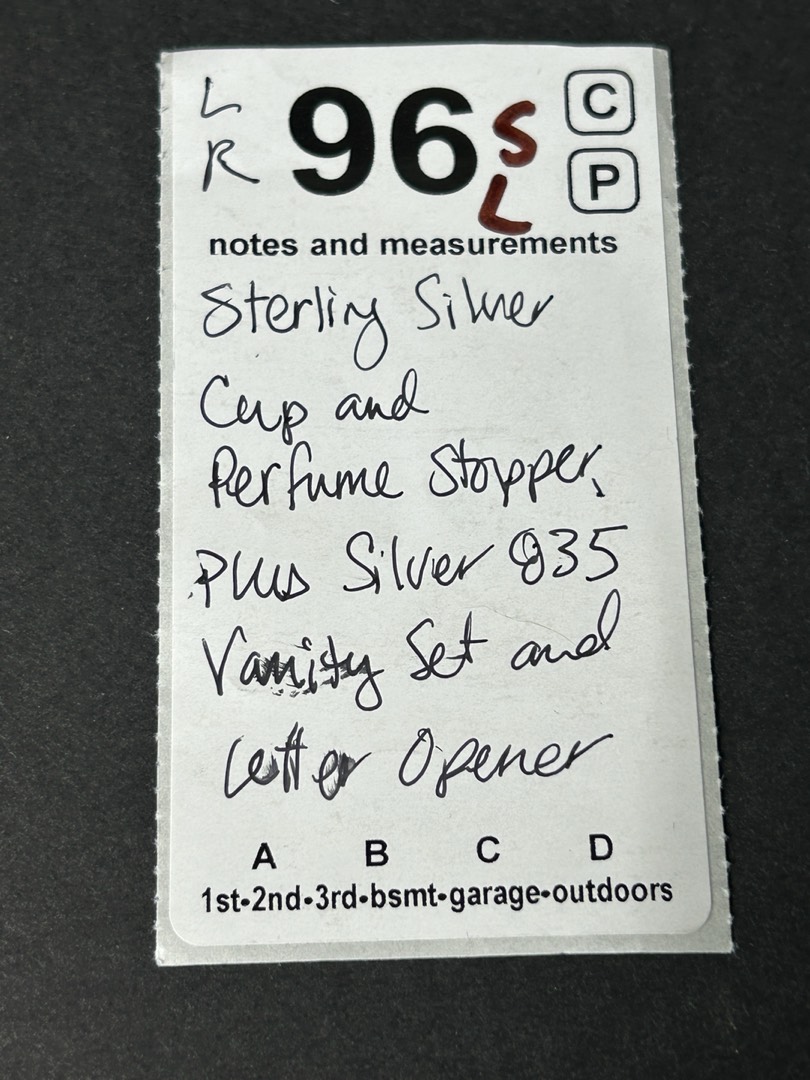 L R 96 S L C P
notes and measurements
Sterling Silver
Cup and
Perfume Stopper,
plus Silver 835
Vanity Set and
Letter Opener
A B C D
1st•2nd•3rd•bsmt•garage•outdoors